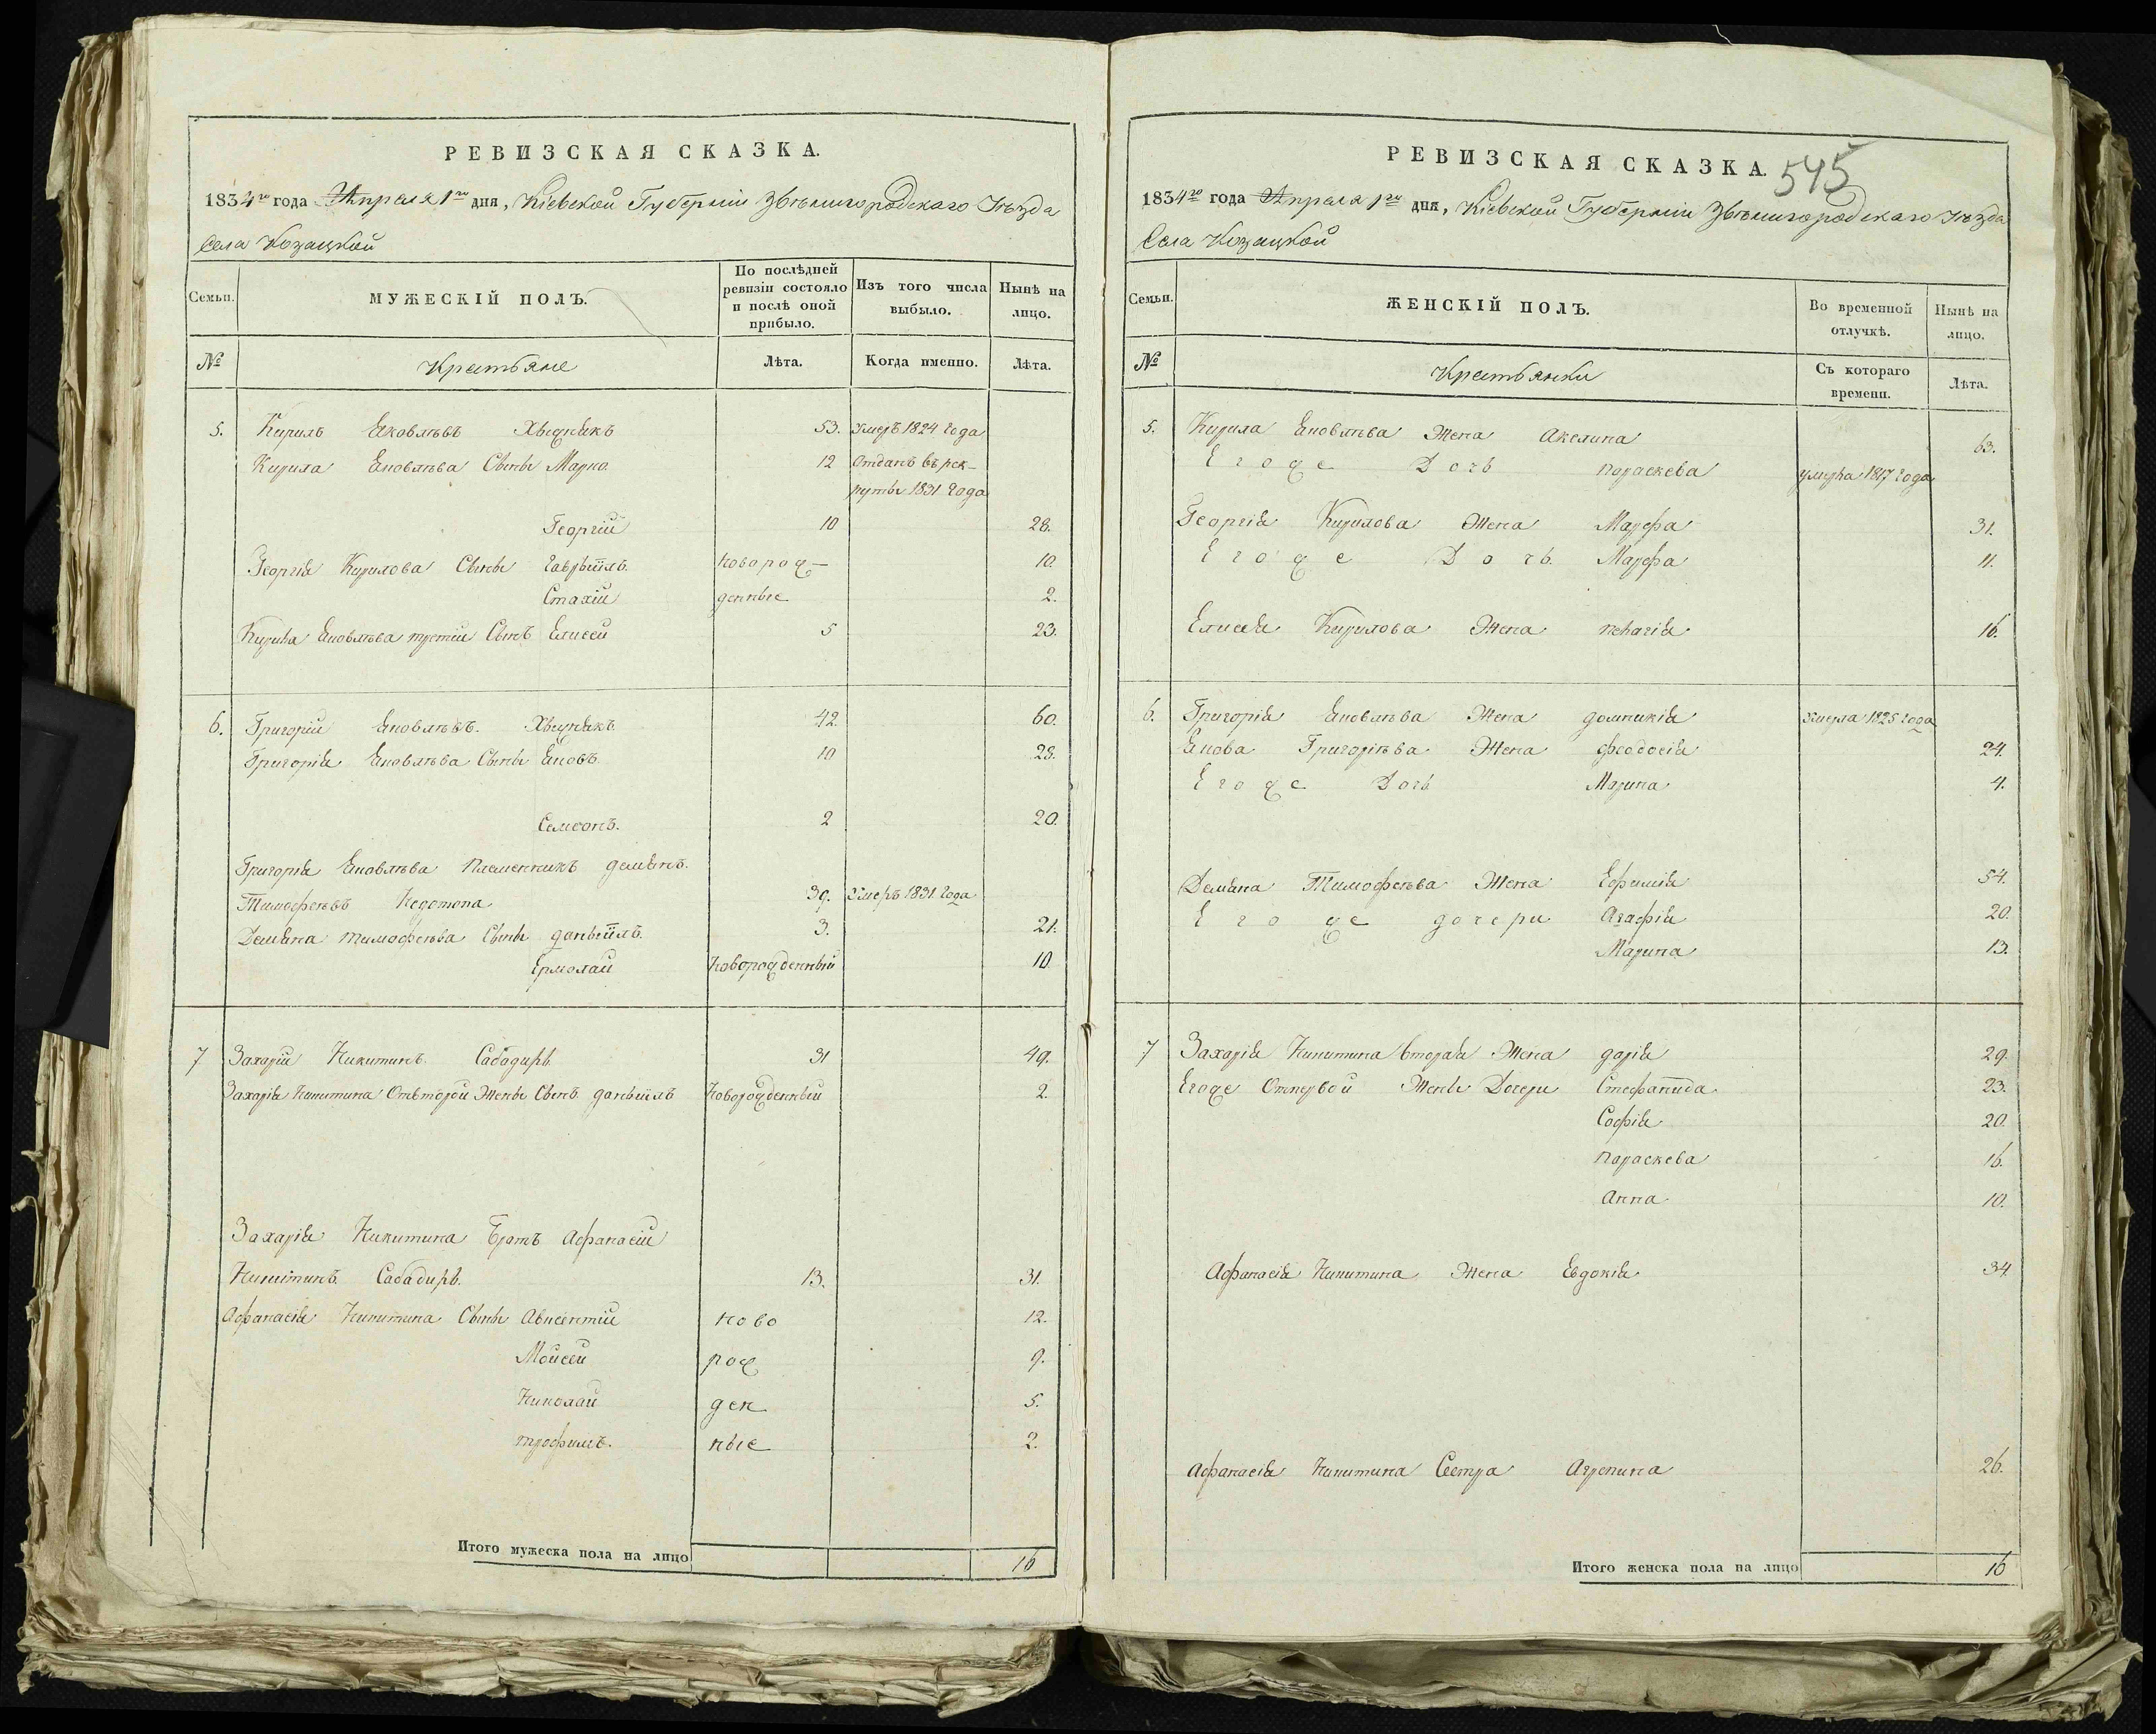 РЕВИЗСКАЯ СКАЗКА.
1834го года Апреля 1го дня, Кіевской Губерніи Звѣнигородскаго Уѣзда
Села Козацкой
Семьи.
МУЖЕСКІЙ ПОЛЪ.
По послѣдней ревизіи состояло и послѣ оной прибыло.
Изъ того числа выбыло.
Нынѣ на лицо.
№
Крестьяне
Лѣта.
Когда именно.
Лѣта.
5. Кирилъ Яковлѣвъ 53. Умеръ 1824 года
Кирила Яковлѣва Сыны Марко 12 Отданъ въ рек-
руты 1831 года
Георгій 10 28.
Георгія Кирилова Сыны Гаврыилъ. новорож- 10.
Стахій денные 2.
Кирила Яковлѣва третій Сынъ Елисей 5 23.
6. Григорій Яковлѣвъ. 42. 60.
Григорія Яковлѣва Сыны Яковъ. 10 28.
Семеонъ. 2 20.
Григорія Яковлѣва племенникъ демянъ.
Тимофеѣвъ Недотопа 39. Умеръ 1831 года
Демяна тимофеѣва Сыны даныилъ. 3. 21.
Ермолай Новорожденный 10.
7 Захарій Никитинъ. Сабадиръ. 31 49.
Захарія Никитина Отвторой Жены Сынъ даныилъ Новорожденный 2.
Захарія Никитина Братъ Афанасій
Никитинъ. Сабадиръ. 13. 31.
Афанасія Никитина Сыны Авксентій ново 12.
Мойсей рож 9.
Николай ден 5.
трофимъ. ные 2.
Итого мужеска пола на лицо 16
РЕВИЗСКАЯ СКАЗКА.
545
1834го года Апреля 1го дня, Кіевской Губерніи Звѣнигородскаго Уѣзда
Села Козацкой
Семьи.
ЖЕНСКІЙ ПОЛЪ.
Во временной отлучкѣ.
Нынѣ на лицо.
№
Крестьянки
Съ котораго времени.
Лѣта.
5. Кирила Яковлѣва Жена Акелина 63.
Егоже Дочь параскева умерла 1817 года
Георгія Кирилова Жена Марфа 31.
Егоже Дочь Марфа 11.
Елисея Кирилова Жена пелагія 16.
6. Григорія Яковлѣва Жена домникія Умерла 1825 года
Якова Григорѣва Жена феодосія 24.
Егоже Дочь Марина 4.
Демяна Тимофеѣва Жена Ефимія 54.
Егоже дочери Агафія 20.
Марина 13.
7 Захарія Никитина вторая Жена дарія 29.
Егоже Отпервой Жены Дочери Стефанида 23.
Софія 20.
параскева 16.
Анна 10.
Афанасія Никитина Жена Евдокія 34
Афанасія Никитина Сестра Агрепина 26.
Итого женска пола на лицо 16